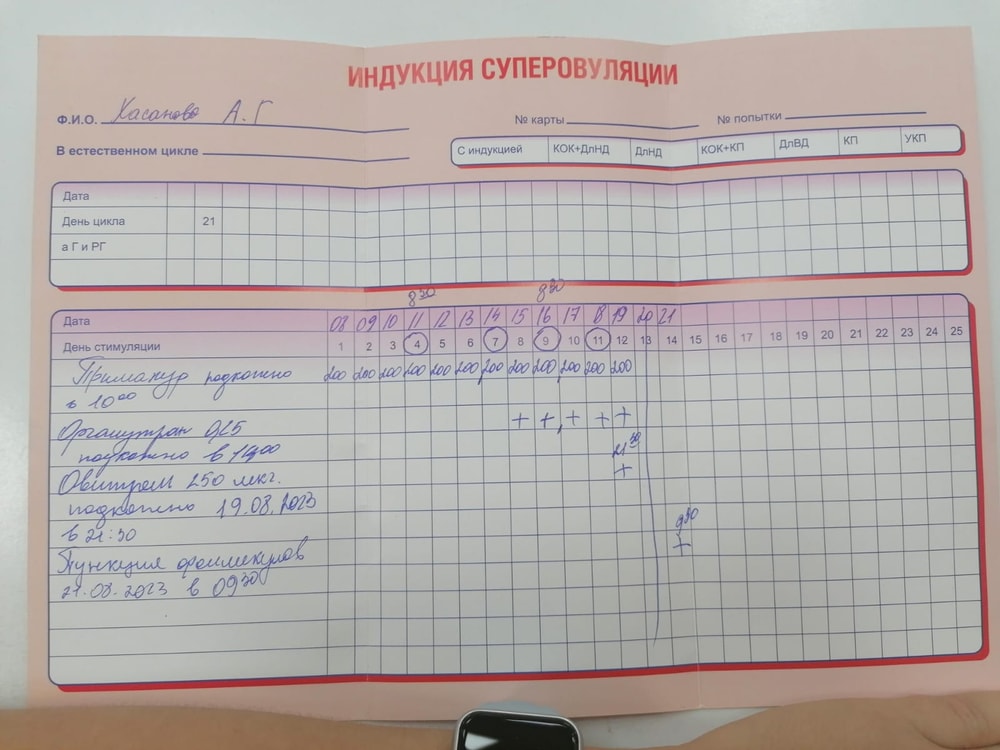 ИНДУКЦИЯ СУПЕРОВУЛЯЦИИ
Ф.И.О. Хасанова А.Г
№ карты
№ попытки
В естественном цикле
С индукцией КОК+ДлНД ДлНД КОК+КП ДлВД КП УКП
Дата
День цикла 21
а Г и РГ
8 30 8 30
Дата 08 09 10 11 12 13 14 15 16 17 18 19 20 21
День стимуляции 1 2 3 4 5 6 7 8 9 10 11 12 13 14 15 16 17 18 19 20 21 22 23 24 25
подкожно 200 200 200 200 200 200 200 200 200 200 200 200
в 10 00
Оргалутран 0,25 + + + + +
подкожно в 14 00
21 30
Овитрел 250 мкг. +
подкожно 19.08.2023
в 21:30
9 30
Пункция фолликулов +
21.08.2023 в 09 30